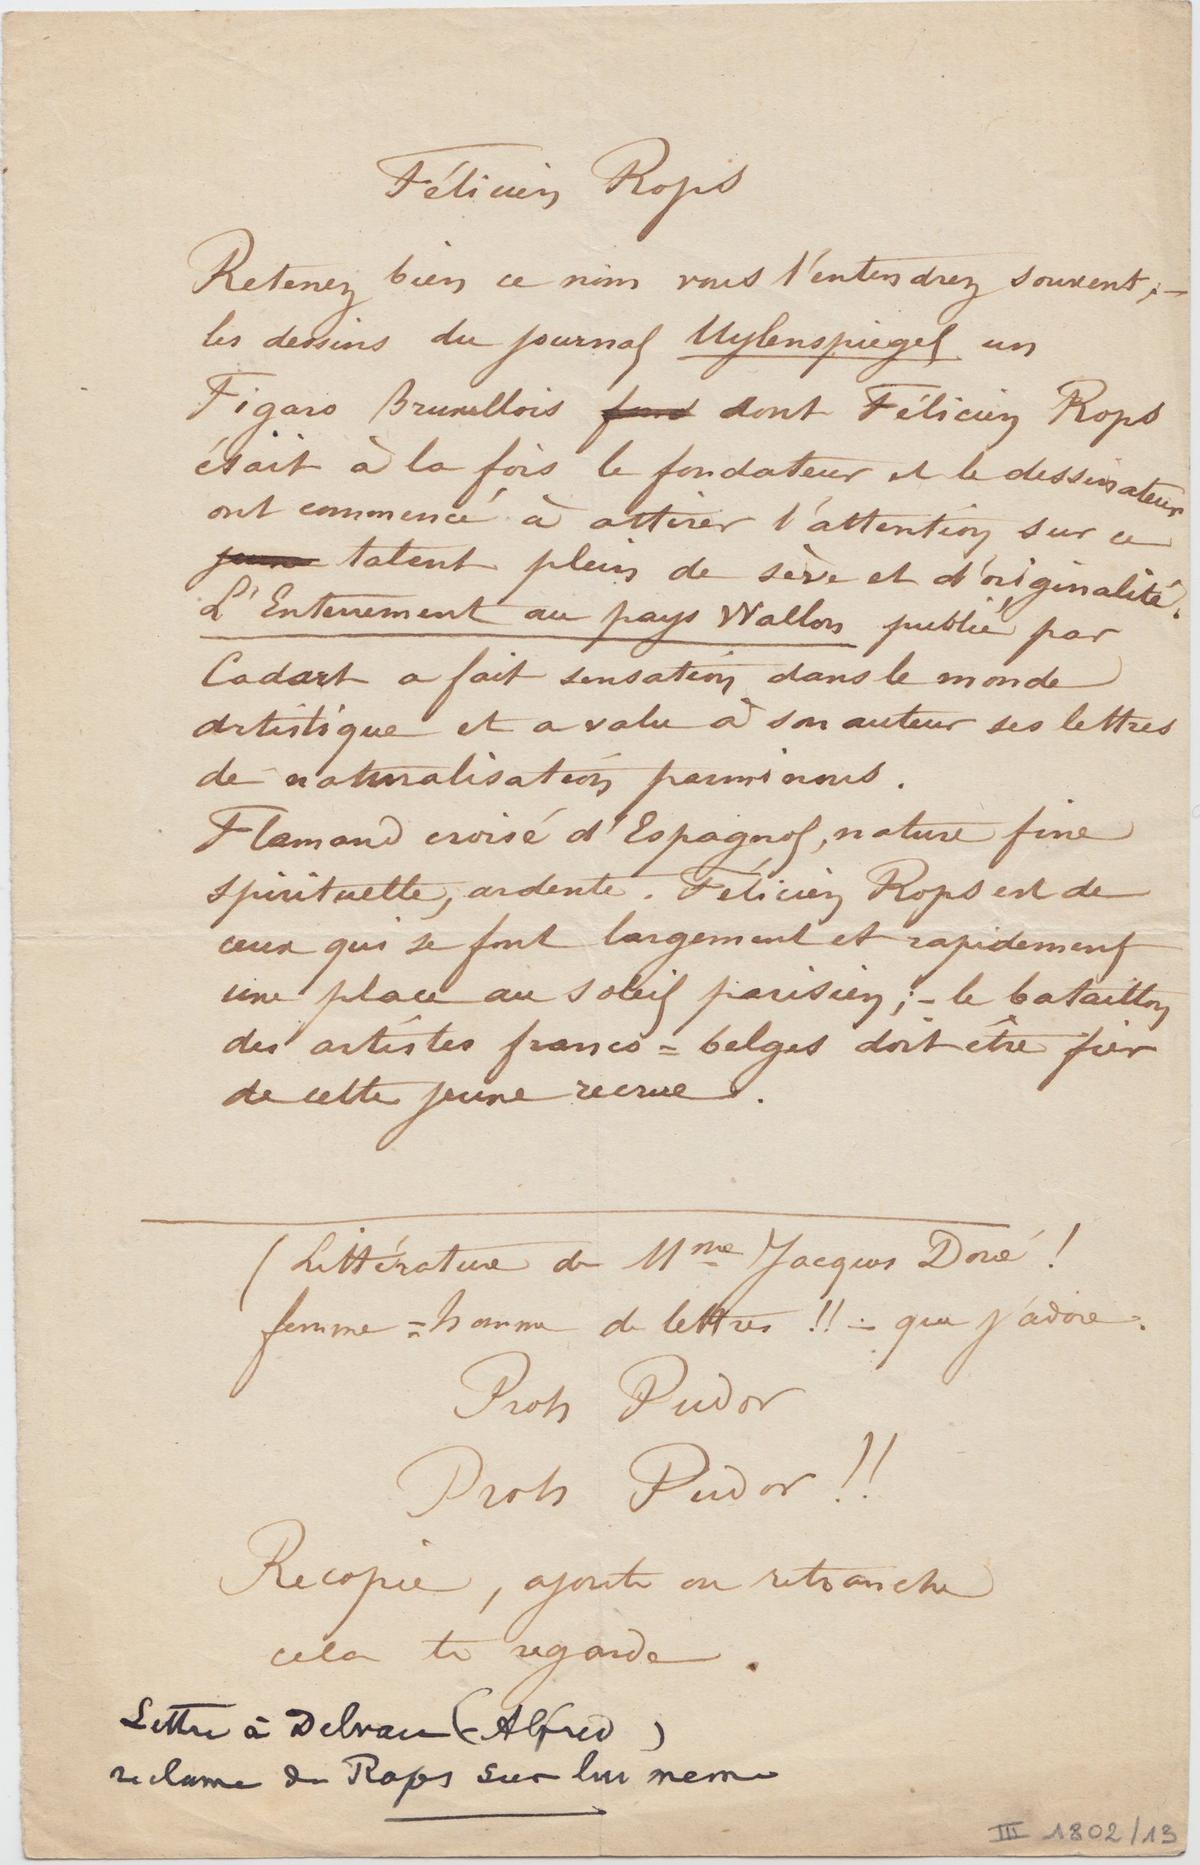 Félicien Rops
Retenez bien ce nom vous l'entendrez souvent, –
les dessins du journal Uylenspiegel un
Figaro Bruxellois fond dont Félicien Rops
était à la fois le fondateur et le dessinateur
ont commencé à attirer l'attention sur ce
jeune talent plein de sève et d'originalité.
L'Enterrement au pays Wallon publié par
Cadart a fait sensation dans le monde
artistique et a valu à son auteur ses lettres
de naturalisation parmi nous.
Flamand croisé d'Espagnol, nature fine
spirituelle, ardente. Félicien Rops est de
ceux qui se font largement et rapidement
une place au soleil parisien; – le bataillon
des artistes franco = belges doit être fier
de cette jeune recrue.
(Littérature de Mme Jacques Doré!
femme = homme de lettres!! – que j'adore.
Proh Pudor
Proh Pudor!!
Recopie, ajoute ou retranche
cela te regarde.
Lettre à Delvau (Alfred)
reclame de Rops sur lui meme
III 1802/13